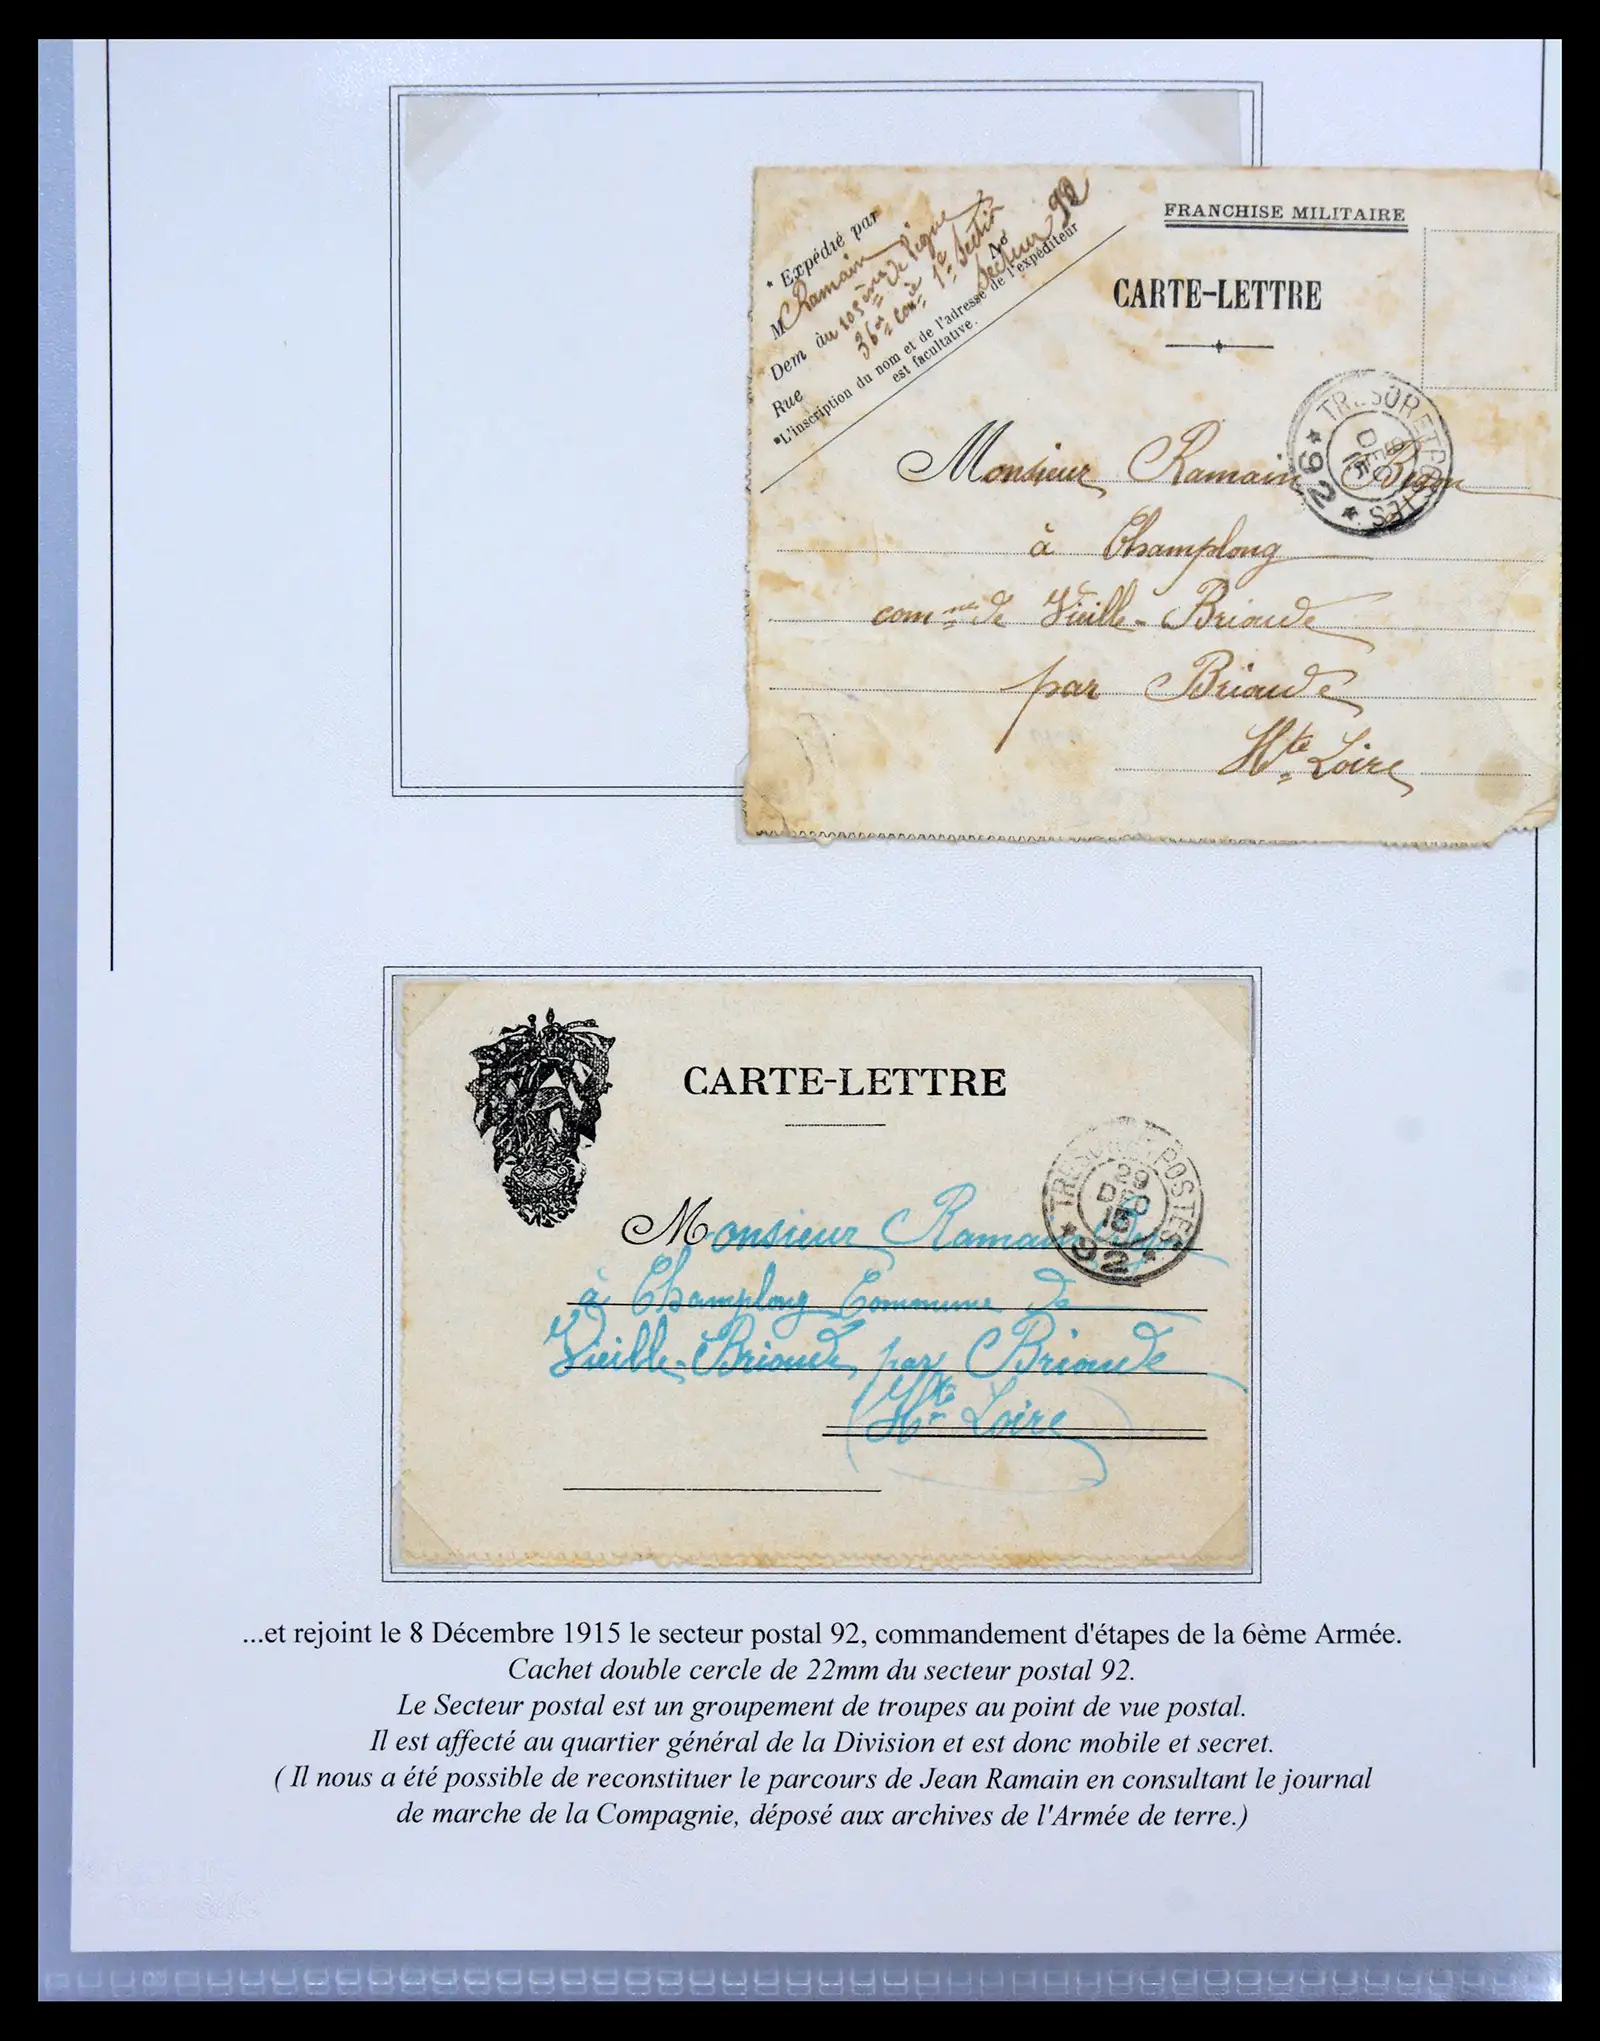 FRANCHISE MILITAIRE
CARTE-LETTRE
* Expédié par
M Ramain
Dem au 105ème de ligne
36e Conie 1e Section
Rue No Secteur 92
*L'inscription du nom et de l'adresse de l'expéditeur
est facultative.
TRESOR ET POSTES
8
DEC
15
* 92 *
Monsieur Ramain
à Champlong
comne de Vieille-Brioude
par Brioude
Hte Loire
CARTE-LETTRE
TRESOR ET POSTES
29
DEC
15
* 92 *
Monsieur Ramain
à Champlong Commune de
Vieille-Brioude, par Brioude
(Hte Loire)
...et rejoint le 8 Décembre 1915 le secteur postal 92, commandement d'étapes de la 6ème Armée.
Cachet double cercle de 22mm du secteur postal 92.
Le Secteur postal est un groupement de troupes au point de vue postal.
Il est affecté au quartier général de la Division et est donc mobile et secret.
( Il nous a été possible de reconstituer le parcours de Jean Ramain en consultant le journal
de marche de la Compagnie, déposé aux archives de l'Armée de terre.)